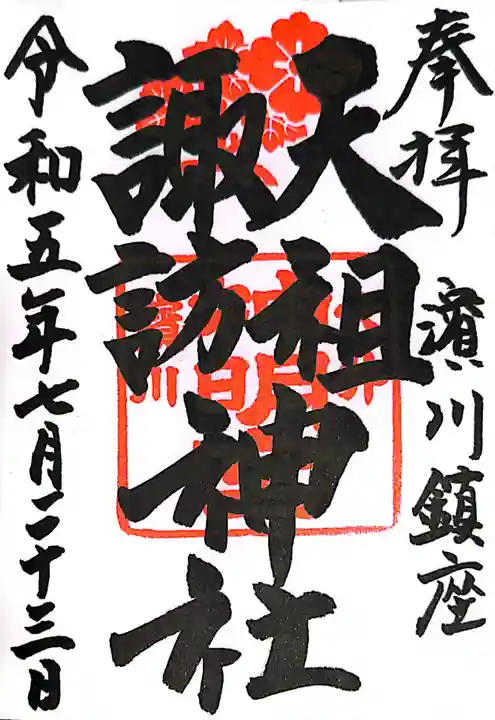 奉拝
濱川鎮座
天祖
諏訪
神社
令和五年七月二十三日